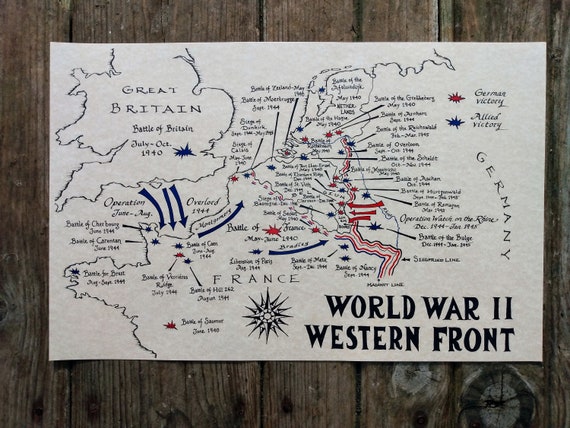 GREAT
BRITAIN
Battle of Britain
July - Oct.
1940
Operation Overlord
June - Aug. 1944
Montgomery
Bradley
Battle of Cherbourg
June 1944
Battle of Carentan
June 1944
Battle of Caen
Jun-Aug.
1944
Battle for Brest
Aug-Sept. 1944
Battle of Verrières
Ridge
July 1944
Battle of Hill 262
August 1944
Battle of Saumur
June 1940
Liberation of Paris
Aug. 1944
Battle of Metz
Sept. - Dec. 1944
Battle of Nancy
Sept. 1944
Battle of France
May - June 1940
FRANCE
Siege of
Dunkirk
Siege of
Calais
May-June
1940
Battle of Zeeland - May
Battle of the
Afsluitdijk
May 1940
NETHER
LANDS
Battle of the Hague
May 1940
Battle of the Grebbeberg
May 1940
Battle of Arnhem
Sept. 1944
Battle of the Reichswald
Feb. - Mar. 1945
Battle of Overloon
Sept. - Oct. 1944
Battle of the Scheldt
Oct - Nov. 1944
Battle of Maastricht
Battle of Aachen
Oct. 1944
Battle of Hurtgenwald
Battle of Remagen
Mar. 1945
Operation Watch on the Rhine
Dec. 1944 - Jan. 1945
Battle of the Bulge
Dec. 1944 - Jan. 1945
SIEGFRIED LINE
MAGINOT LINE
German
victory
Allied
victory
GERMANY
WORLD WAR II
WESTERN FRONT